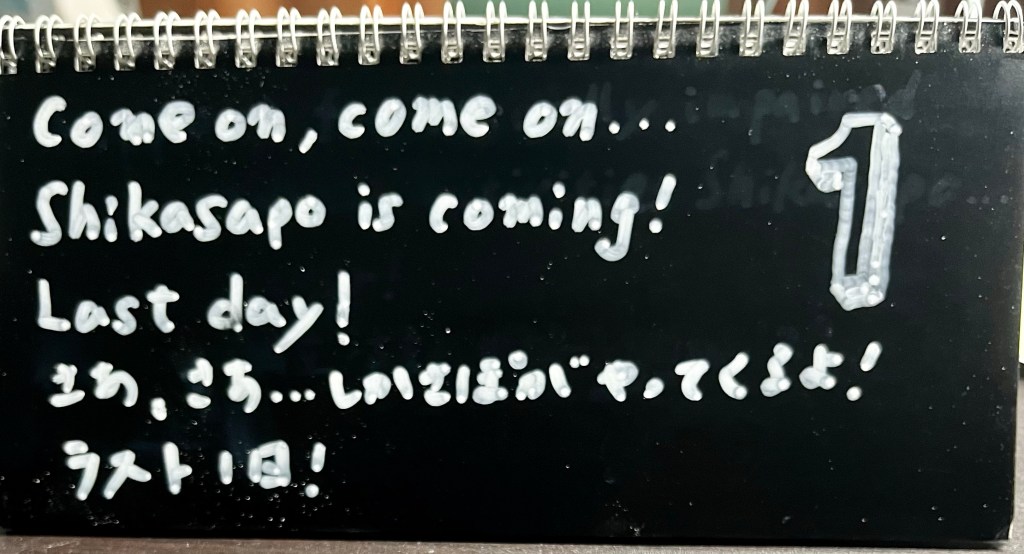 Come on, come on...
1
Shikasapo is coming!
Last day!
さあ、さあ...しかさぽがやってくるよ!
ラスト1日!